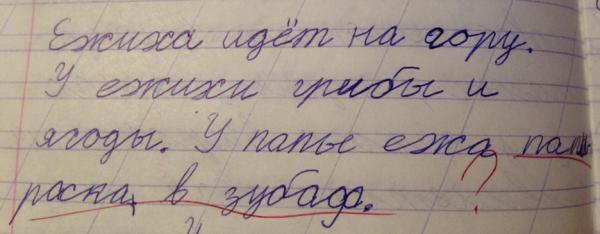 Ежиха идёт на гору.
У ежихи грибы и
ягоды. У папы ежа папи-
роска в зубах. ?